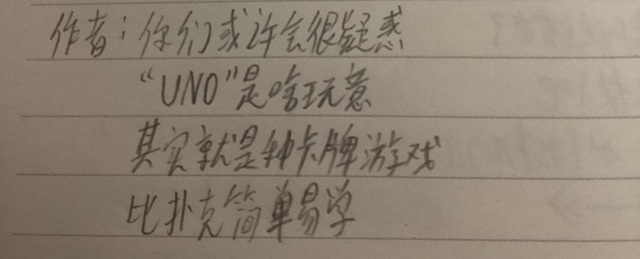 作者：你们或许会很疑惑
“UNO”是啥玩意
其实就是种卡牌游戏
比扑克简单易学